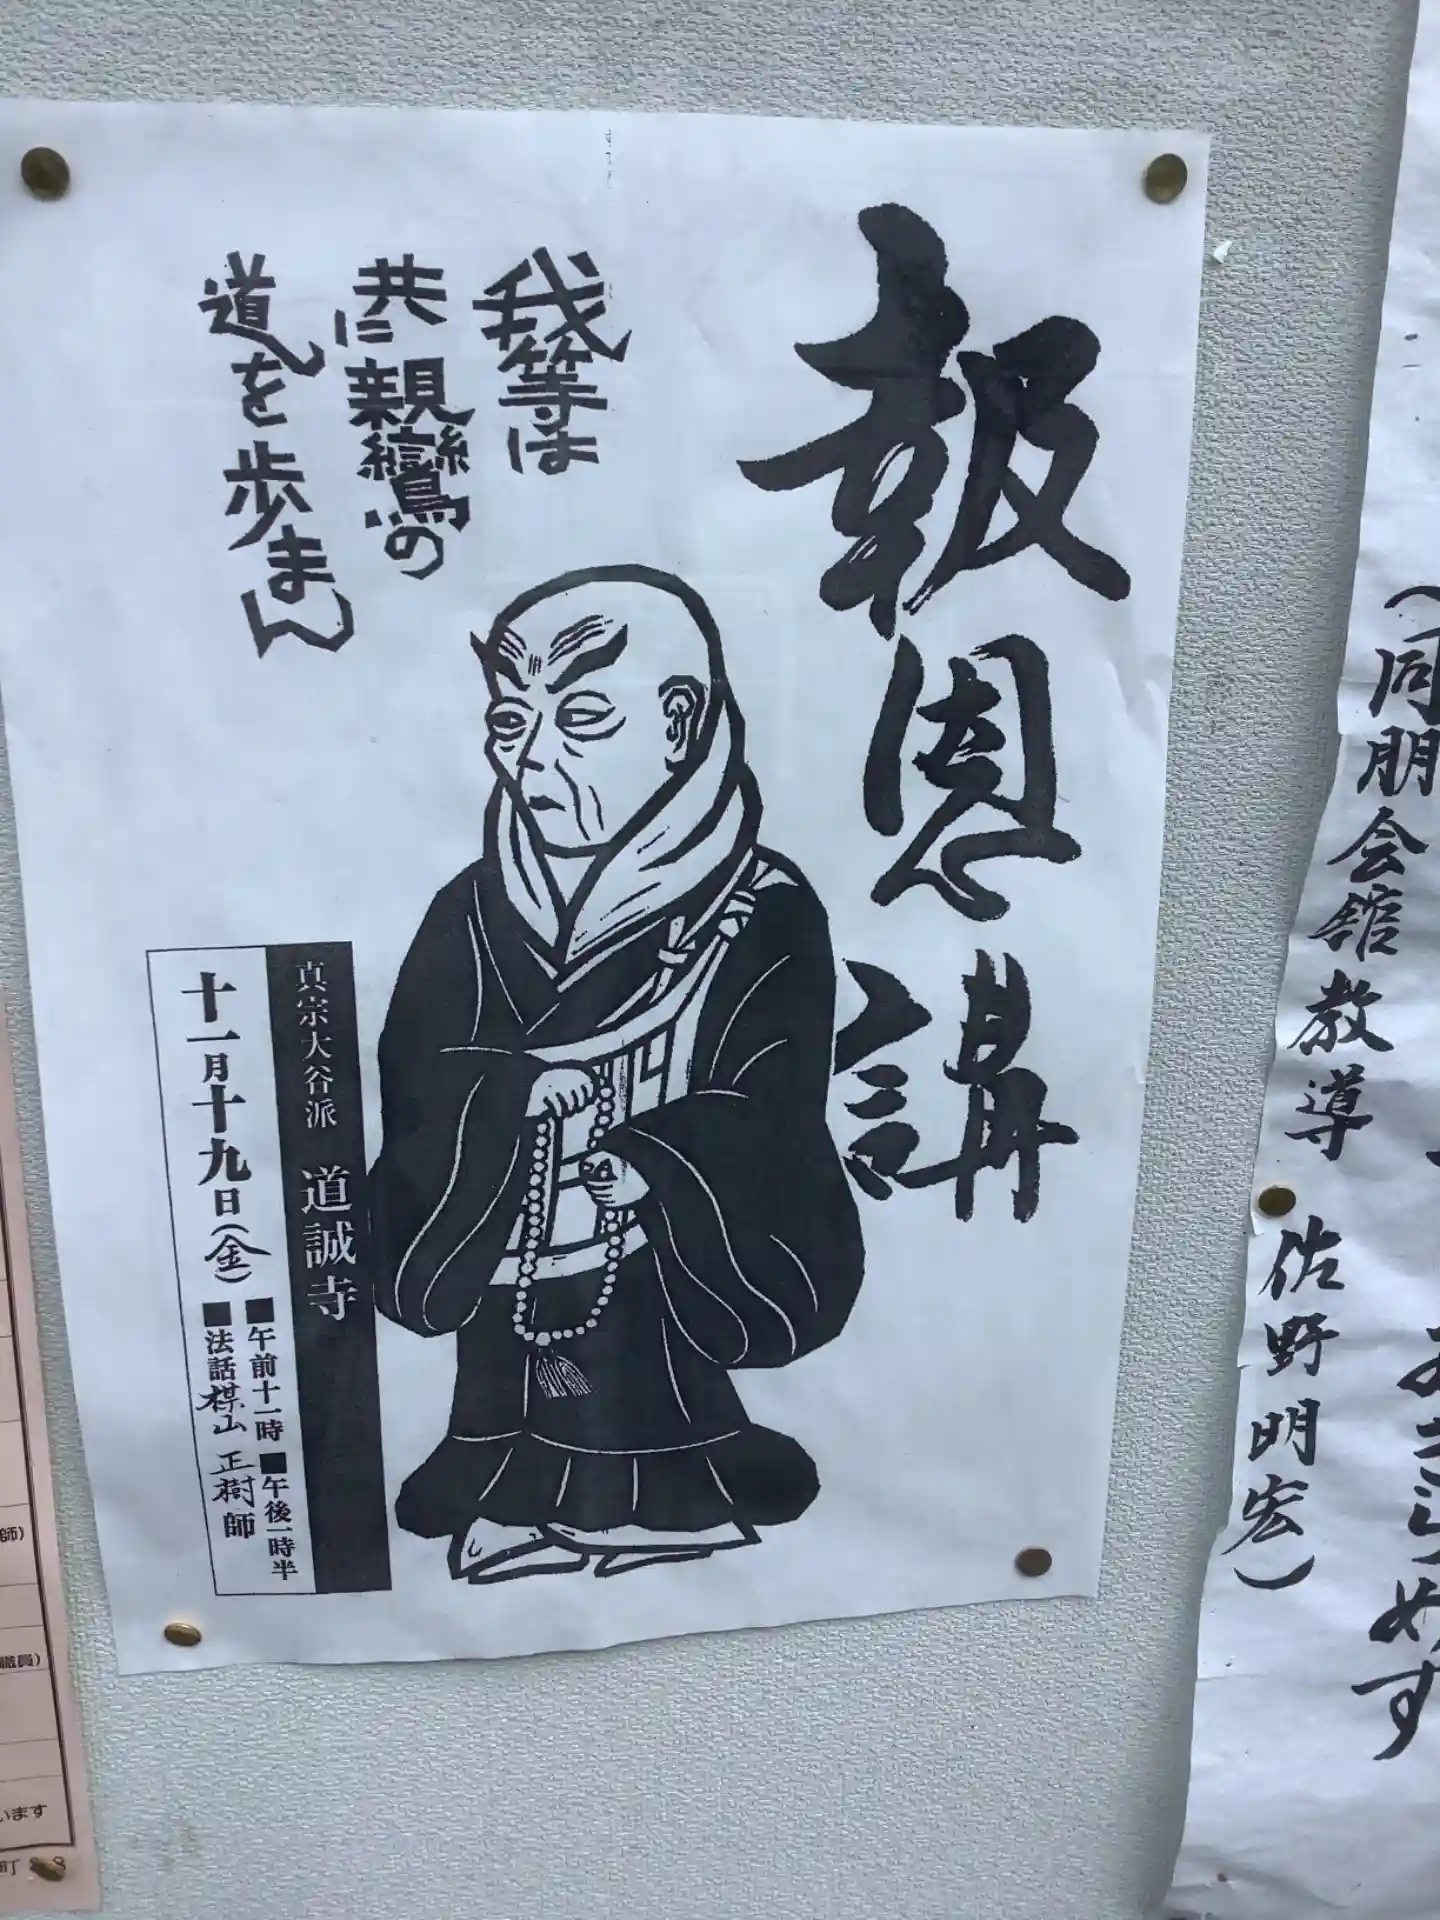 報恩講
我等は
共に親鸞の
道を歩まん
真宗大谷派 道誠寺
十一月十九日(金)
■午前十一時 ■午後一時半
■法話 楳山 正樹 師
(同朋会館教導 佐野明宏)
師)
職員)
います
町